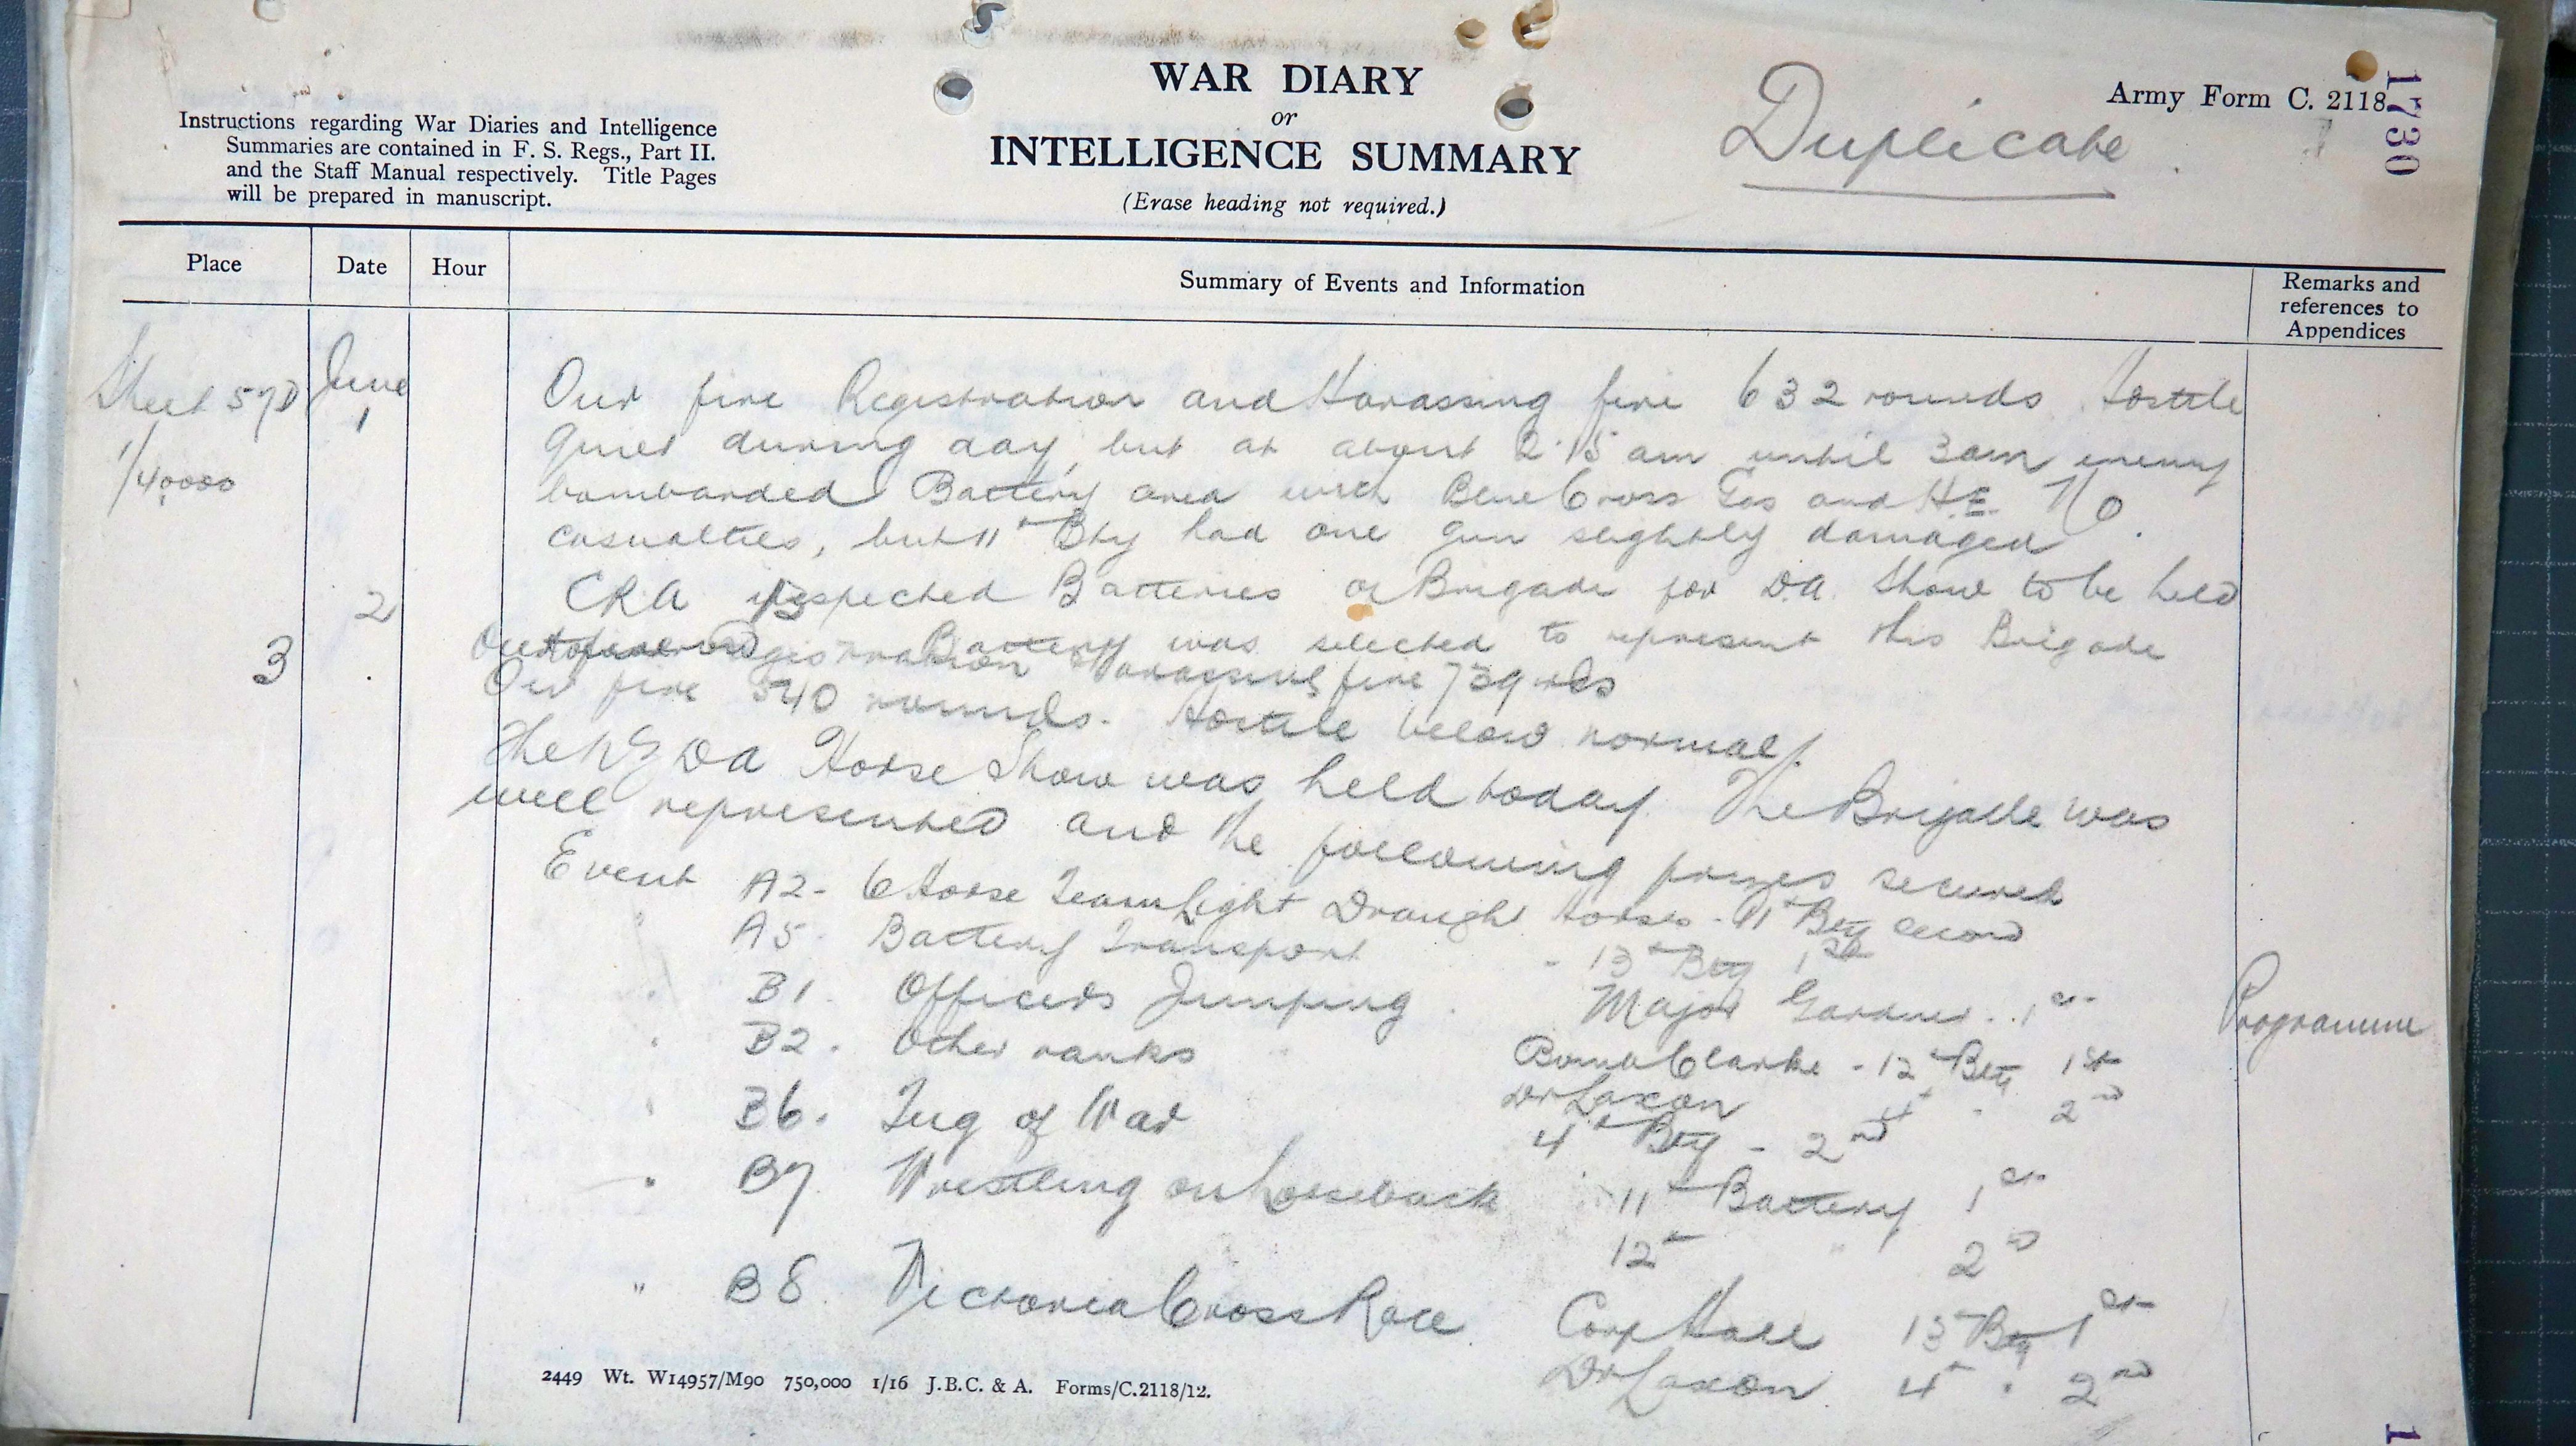 WAR DIARY
or
INTELLIGENCE SUMMARY
(Erase heading not required.)
Instructions regarding War Diaries and Intelligence
Summaries are contained in F. S. Regs., Part II.
and the Staff Manual respectively. Title Pages
will be prepared in manuscript.
Duplicate
Army Form C. 2118
1730
Place Date Hour Summary of Events and Information Remarks and references to Appendices
Sheet 57D June
1/40000 1
Our fire Registration and Harassing fire 632 rounds Hostile
quiet during day, but at about 2.15 am until 3am enemy
bombarded Battery area with Blue Cross Gas and H.E. No
casualties, but 11th Bty had one gun slightly damaged
2 CRA inspected Batteries of Brigade for D.A. Show to be held
Battery was selected to represent this Brigade
Registration Harassing fire 739 rds
3 Our fire 540 rounds. Hostile below normal.
The NZDA Horse Show was held today. The Brigade was
well represented and the following prizes secured
Event A2 - 6 Horse Team Light Draught Horses - 11th Bty second
" A5 - Battery Transport - 13th Bty 1st
" B1. Officers Jumping Major Gardner - 1st
Programme
" B2. Other ranks Bomb Clarke - 12th Bty 1st
Dr Laxon 4th " 2nd
" B6. Tug of War 4th Bty - 2nd
" B7. Wrestling on horseback 11th Battery 1st
12th " 2nd
" B8. Victoria Cross Race Corp Hall 13th Bty 1st
Dr Laxon 4th " 2nd
2449 Wt. W14957/M90 750,000 1/16 J.B.C. & A. Forms/C.2118/12.
1